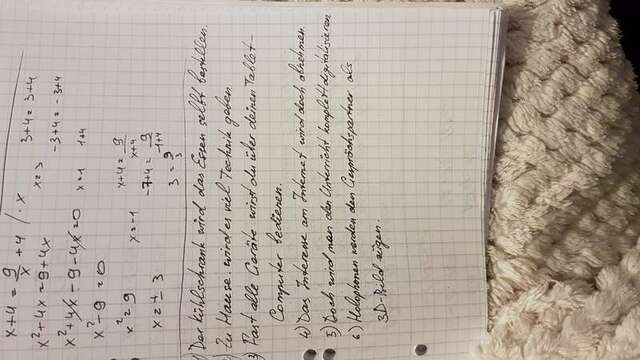 x+4 = 9/x +4 / · x
x² + 4x = 9 + 4x
x² + 4x - 9 - 4x = 0
x² - 9 = 0
x² = 9
x = ± 3
x = 3 3+4 = 3+4
-3+4 = -3+4
x = 1 1+4
x+4 = 9/x+4
x = -1 -7+4 = 9/-1+4
3 = 9/3
1) Der Kühlschrank wird das Essen selbst bestellen.
2) Zu Hause wird es viel Technik geben.
3) Fast alle Geräte wirst du über deinen Tablet-
Computer bedienen.
4) Das Interesse am Internet wird doch abnehmen.
5) Doch wird man den Unterricht komplett digitalisieren
6) Holophonen werden den Gesprächspartner als
3D-Bild zeigen.